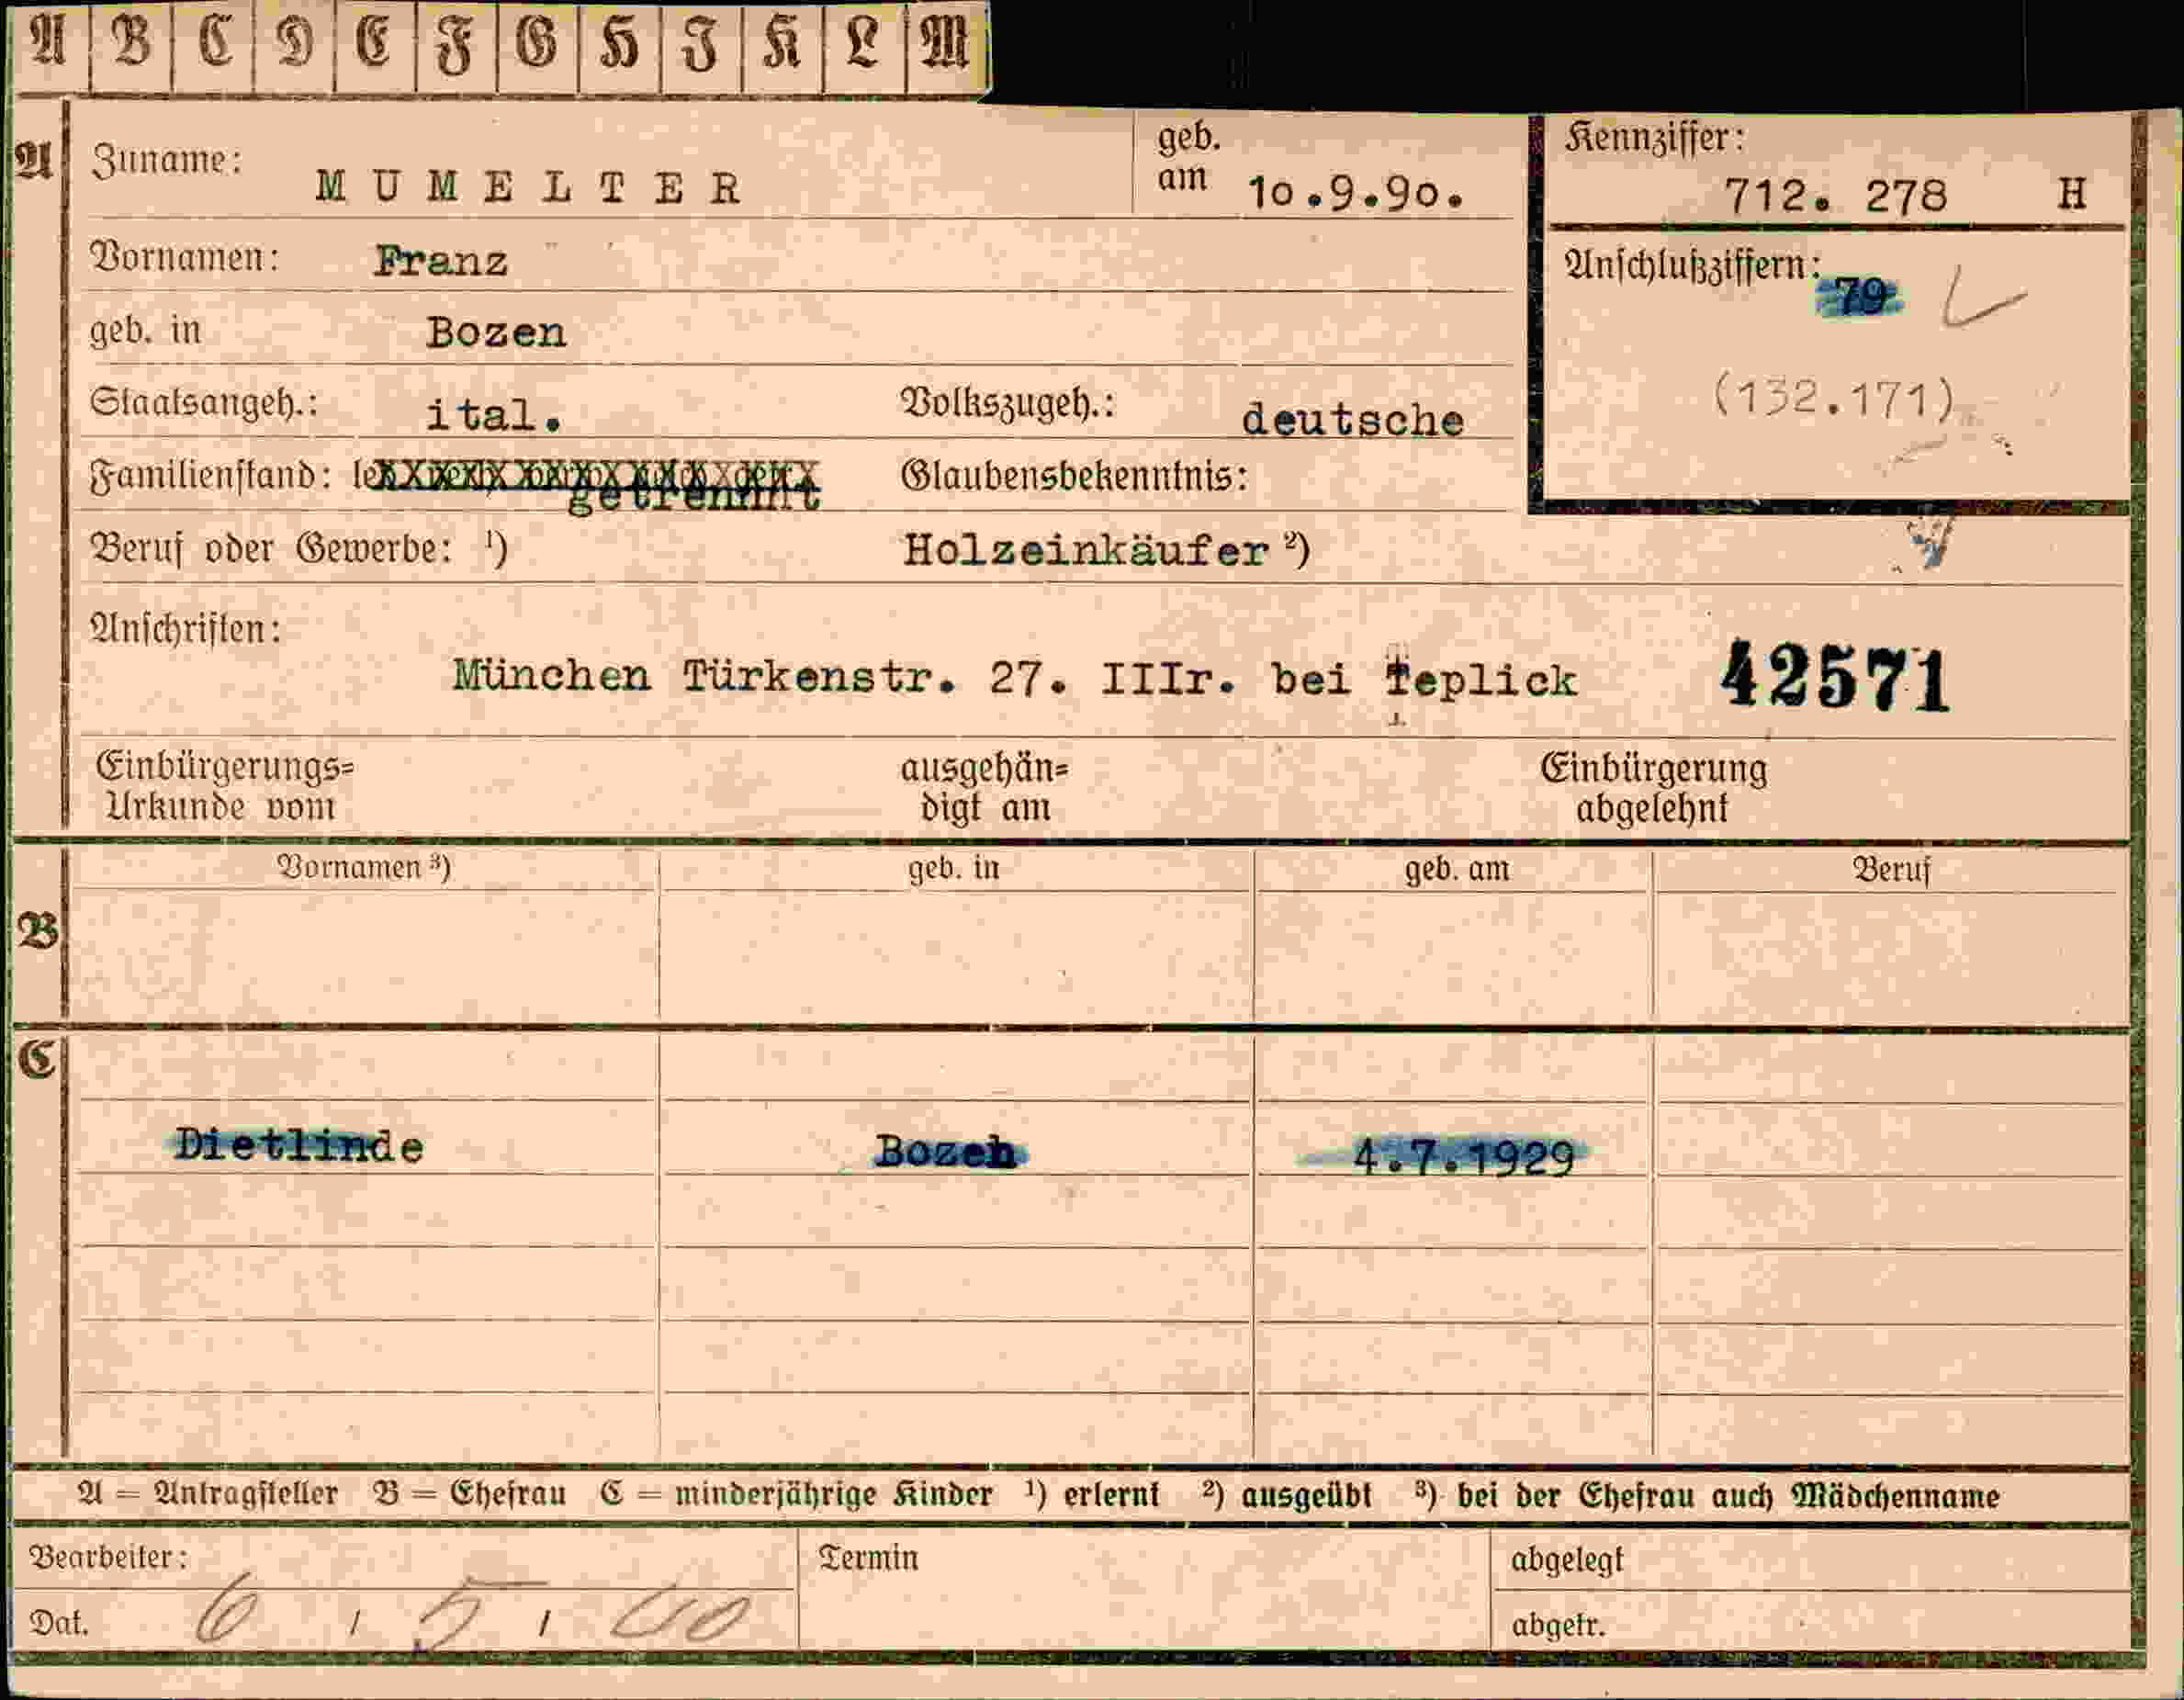 A B C D E F G H I K L M
A Zuname: MUMELTER geb. am 10.9.90. Kennziffer: 712. 278 H
Vornamen: Franz
Anschlußziffern: 79
geb. in Bozen
(132.171)
Staatsangeh.: ital. Volkszugeh.: deutsche
Familienstand: getrennt Glaubensbekenntnis:
Beruf oder Gewerbe: ¹) Holzeinkäufer ²)
Anschriften:
München Türkenstr. 27. IIIr. bei Teplick 42571
Einbürgerungs= ausgehän= Einbürgerung
Urkunde vom digt am abgelehnt
Vornamen ³) geb. in geb. am Beruf
B
C
Dietlinde Bozen 4.7.1929
A = Antragsteller B = Ehefrau C = minderjährige Kinder ¹) erlernt ²) ausgeübt ³) bei der Ehefrau auch Mädchenname
Bearbeiter: Termin abgelegt
Dat. 6 / 5 / 40 abgetr.